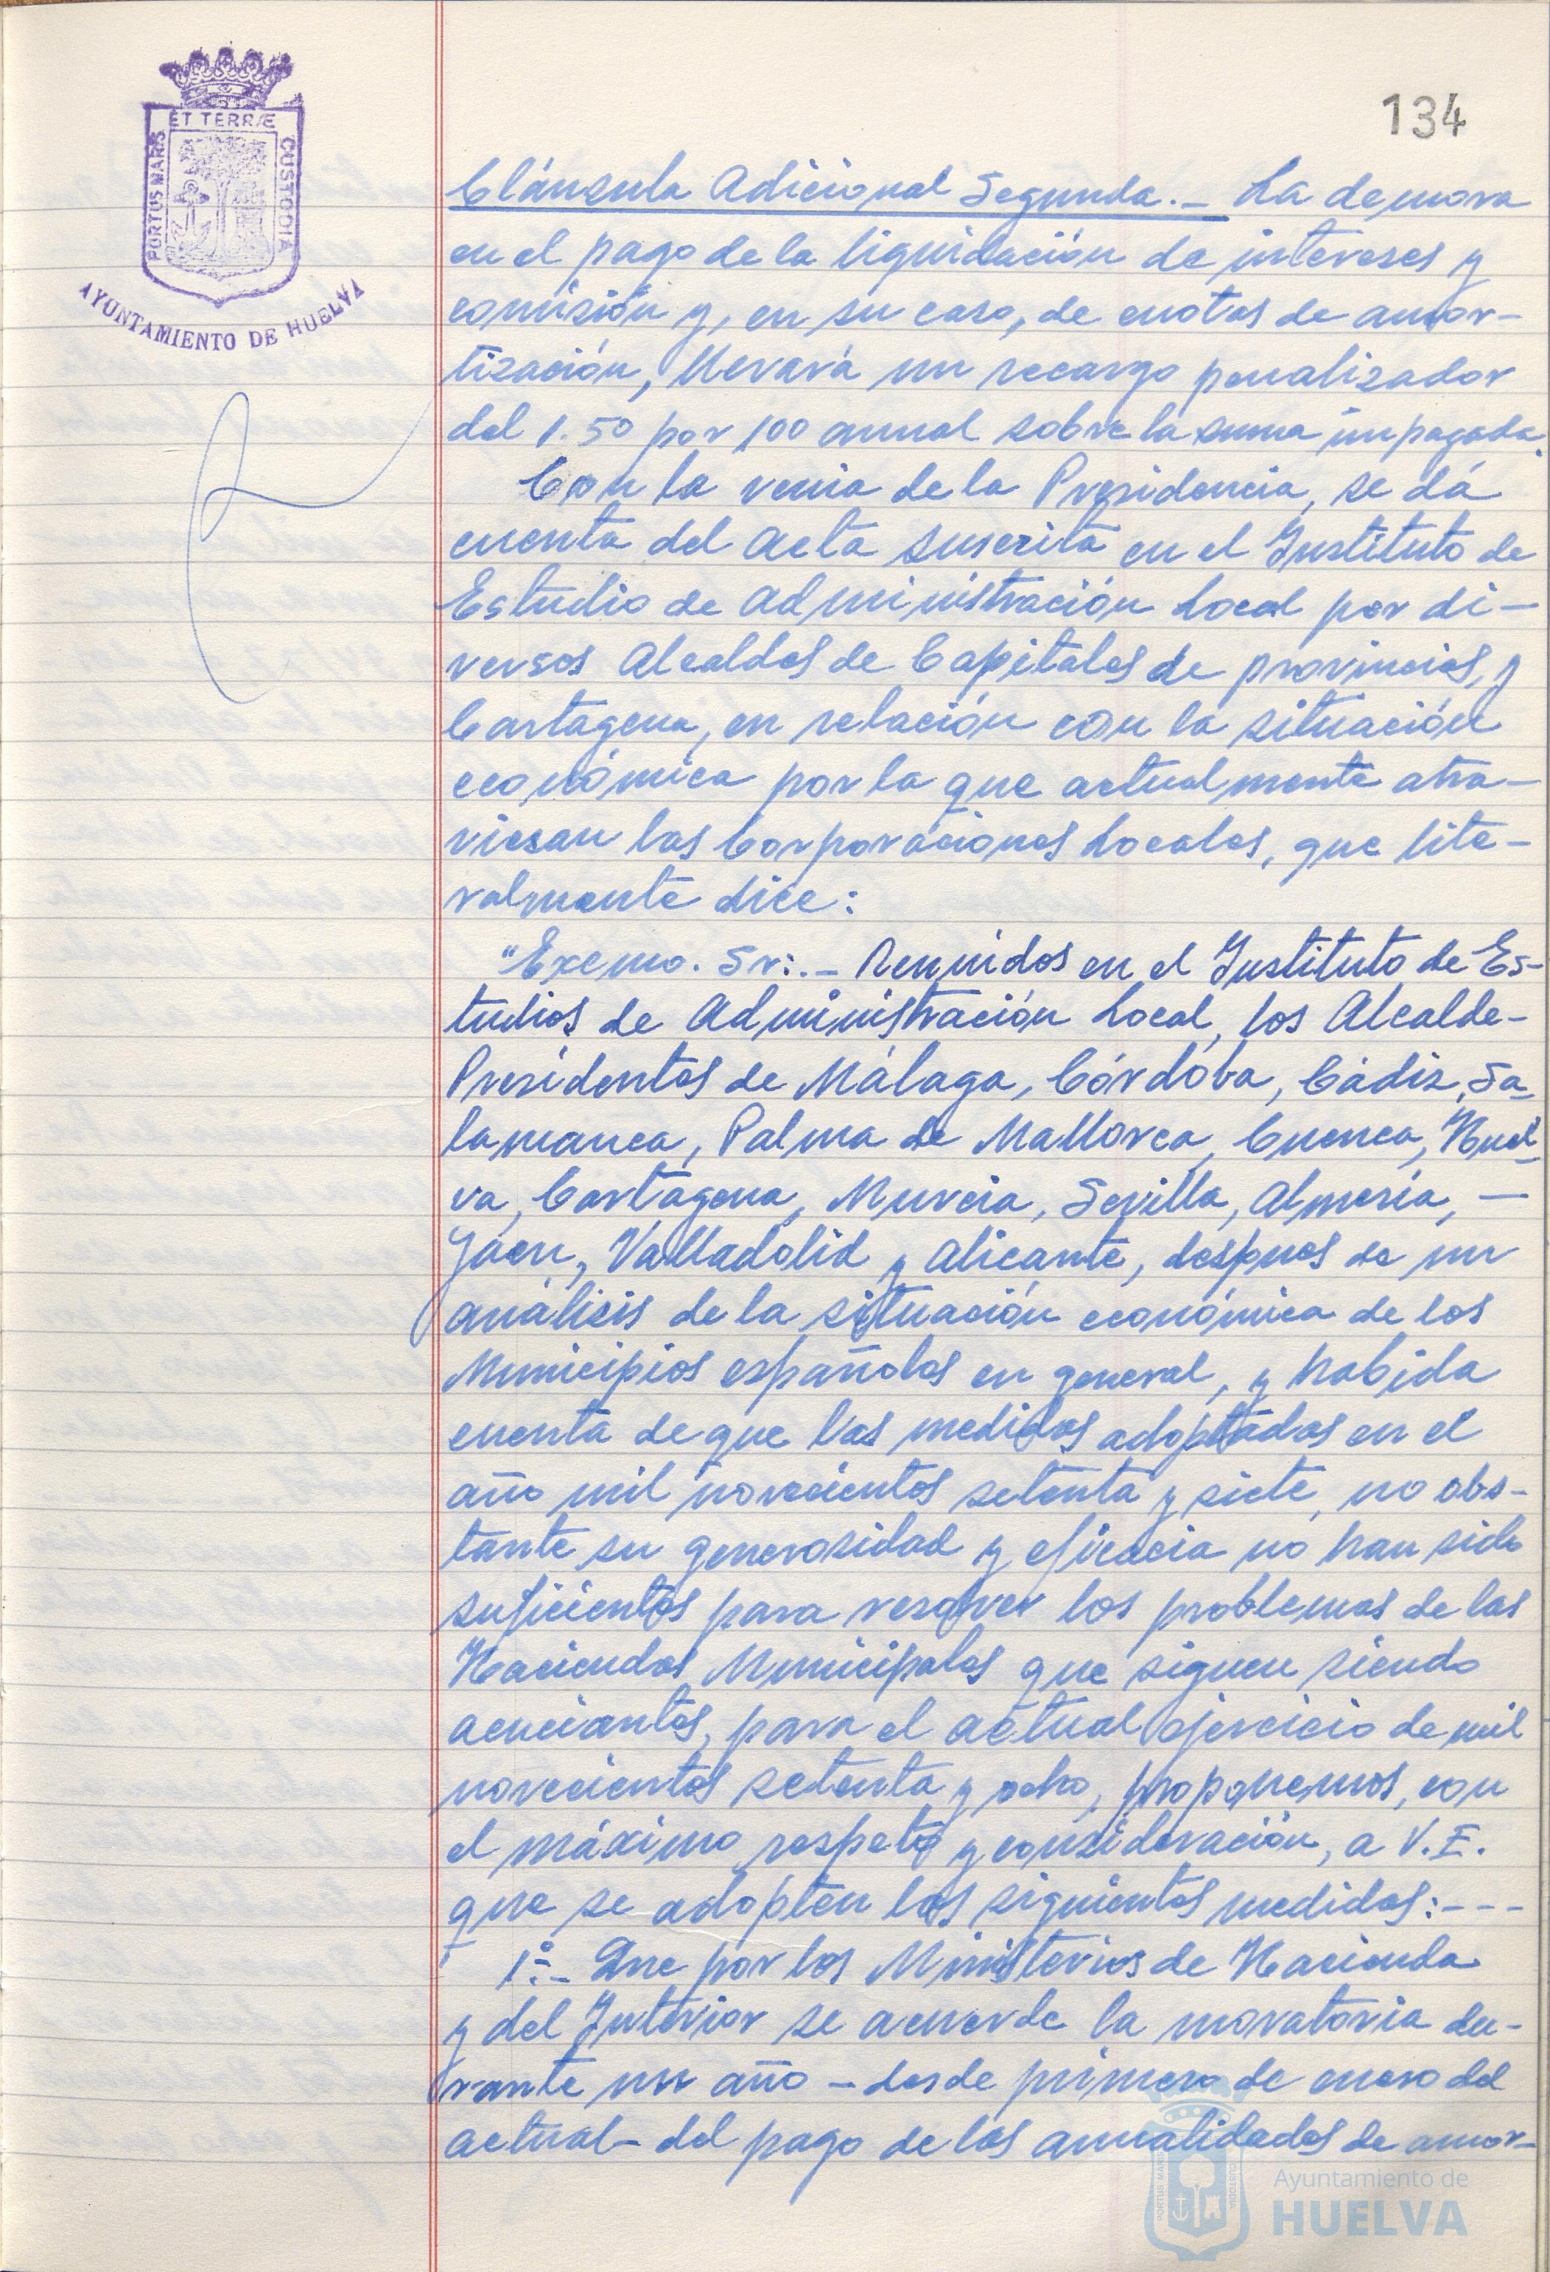 134
ET TERRÆ
PORTUS MARIS
CUSTODIA
AYUNTAMIENTO DE HUELVA
Cláusula Adicional Segunda.- La demora
en el pago de la liquidación de intereses y
comisión y, en su caso, de cuotas de amor-
tización, llevará un recargo penalizador
del 1.50 por 100 annal sobre la suma impagada.
Con la venia de la Presidencia, se dá
cuenta del acta suscrita en el Instituto de
Estudio de Administración Local por di-
versos Alcaldes de Capitales de provincias, y
Cartagena, en relación con la situación
económica por la que actualmente atra-
viesan las Corporaciones Locales, que lite-
ralmente dice:
"Excmo. Sr:.- Reunidos en el Instituto de Es-
tudios de Administración Local, los Alcalde-
Presidentes de Málaga, Córdoba, Cádiz, Sa-
lamanca, Palma de Mallorca, Cuenca, Huel-
va, Cartagena, Murcia, Sevilla, Almería, -
Jaen, Valladolid y Alicante, despues de un
análisis de la situación económica de los
Municipios españoles en general, y habida
cuenta de que las medidas adoptadas en el
año mil novecientos setenta y siete, no obs-
tante su generosidad y eficacia no han sido
suficientes para resolver los problemas de las
Haciendas Municipales que siguen siendo
acuciantes, para el actual ejercicio de mil
novecientos setenta y ocho, proponemos, con
el máximo respeto y consideración, a V.E.
que se adopten las siguientes medidas:---
1º.- Que por los Ministerios de Hacienda
y del Interior se acuerde la moratoria du-
rante un año - desde primero de enero del
actual- del pago de las anualidades de amor-
PORTUS MARIS
CUSTODIA
Ayuntamiento de
HUELVA